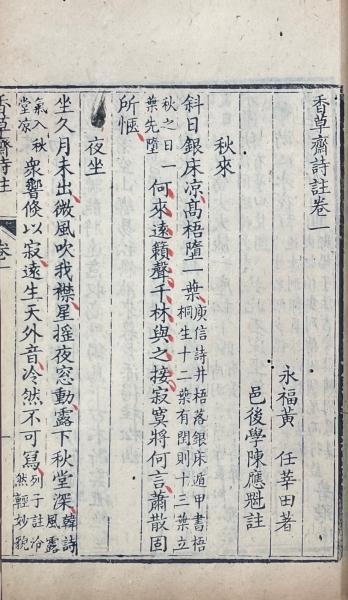 香草齋詩註卷一
永福黃 任莘田著
邑後學陳應魁註
秋來
斜日銀床凉高梧墮一葉庾信詩井梧落銀床遁甲書梧桐生十二葉有閏則十三葉立
秋之日一葉先墮何來遠籟聲千林與之接寂寞將何言蕭散固
所愜
夜坐
坐久月未出微風吹我襟星摇夜窓動露下秋堂深韓詩風露
氣入秋堂凉衆響倐以寂遠生天外音泠然不可寫列子註泠然輕妙貌
香草齋詩註 卷一